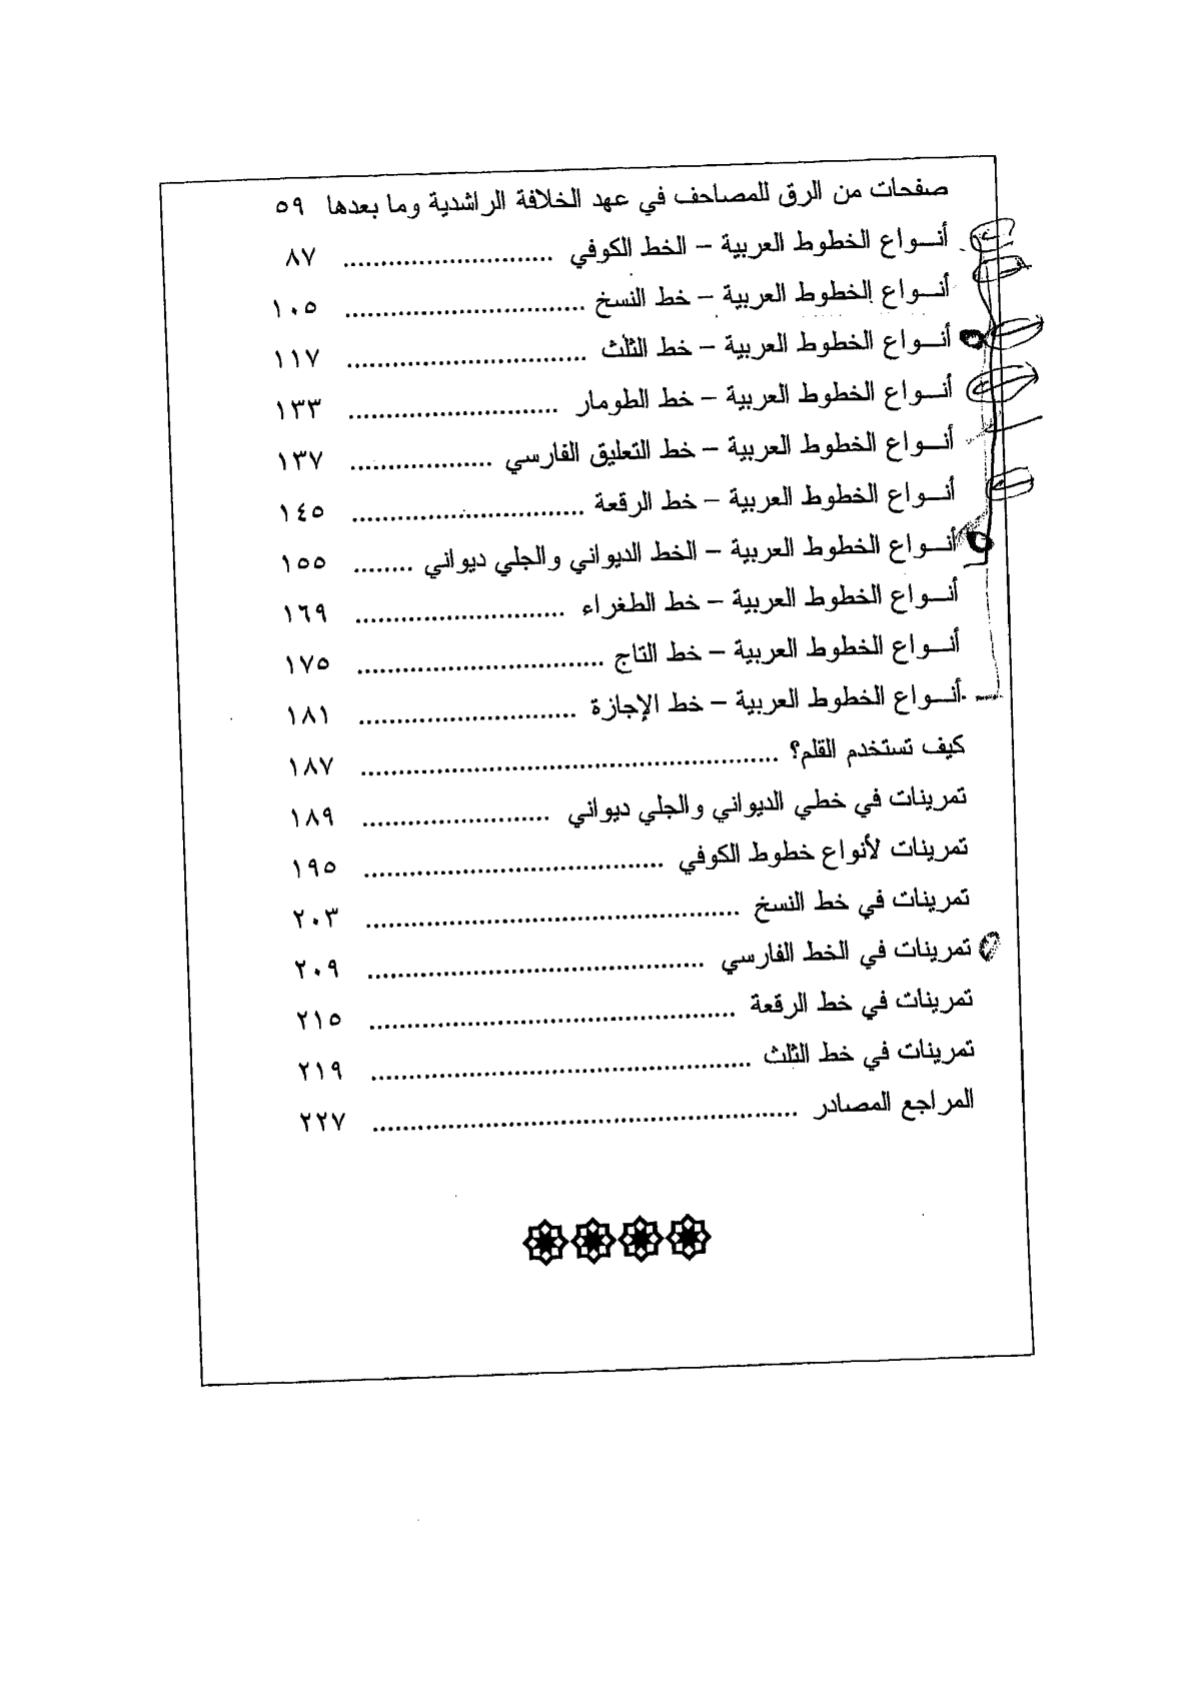 صفحات من الرق للمصاحف في عهد الخلافة الراشدية وما بعدها ٥٩
أنـــواع الخطوط العربية – الخط الكوفي ............................ ٨٧
أنـــواع الخطوط العربية – خط النسخ ................................ ١٠٥
أنـــواع الخطوط العربية – خط الثلث ................................ ١١٧
أنـــواع الخطوط العربية – خط الطومار ............................ ١٣٣
أنـــواع الخطوط العربية – خط التعليق الفارسي ................... ١٣٧
أنـــواع الخطوط العربية – خط الرقعة ............................... ١٤٥
أنـــواع الخطوط العربية – الخط الديواني والجلي ديواني ........ ١٥٥
أنـــواع الخطوط العربية – خط الطغراء ............................ ١٦٩
أنـــواع الخطوط العربية – خط التاج ................................. ١٧٥
أنـــواع الخطوط العربية – خط الإجازة ............................. ١٨١
كيف تستخدم القلم؟ ........................................................ ١٨٧
تمرينات في خطي الديواني والجلي ديواني ......................... ١٨٩
تمرينات لأنواع خطوط الكوفي ........................................ ١٩٥
تمرينات في خط النسخ .................................................. ٢٠٣
تمرينات في الخط الفارسي ............................................. ٢٠٩
تمرينات في خط الرقعة ................................................. ٢١٥
تمرينات في خط الثلث ................................................... ٢١٩
المراجع المصادر ......................................................... ٢٢٧